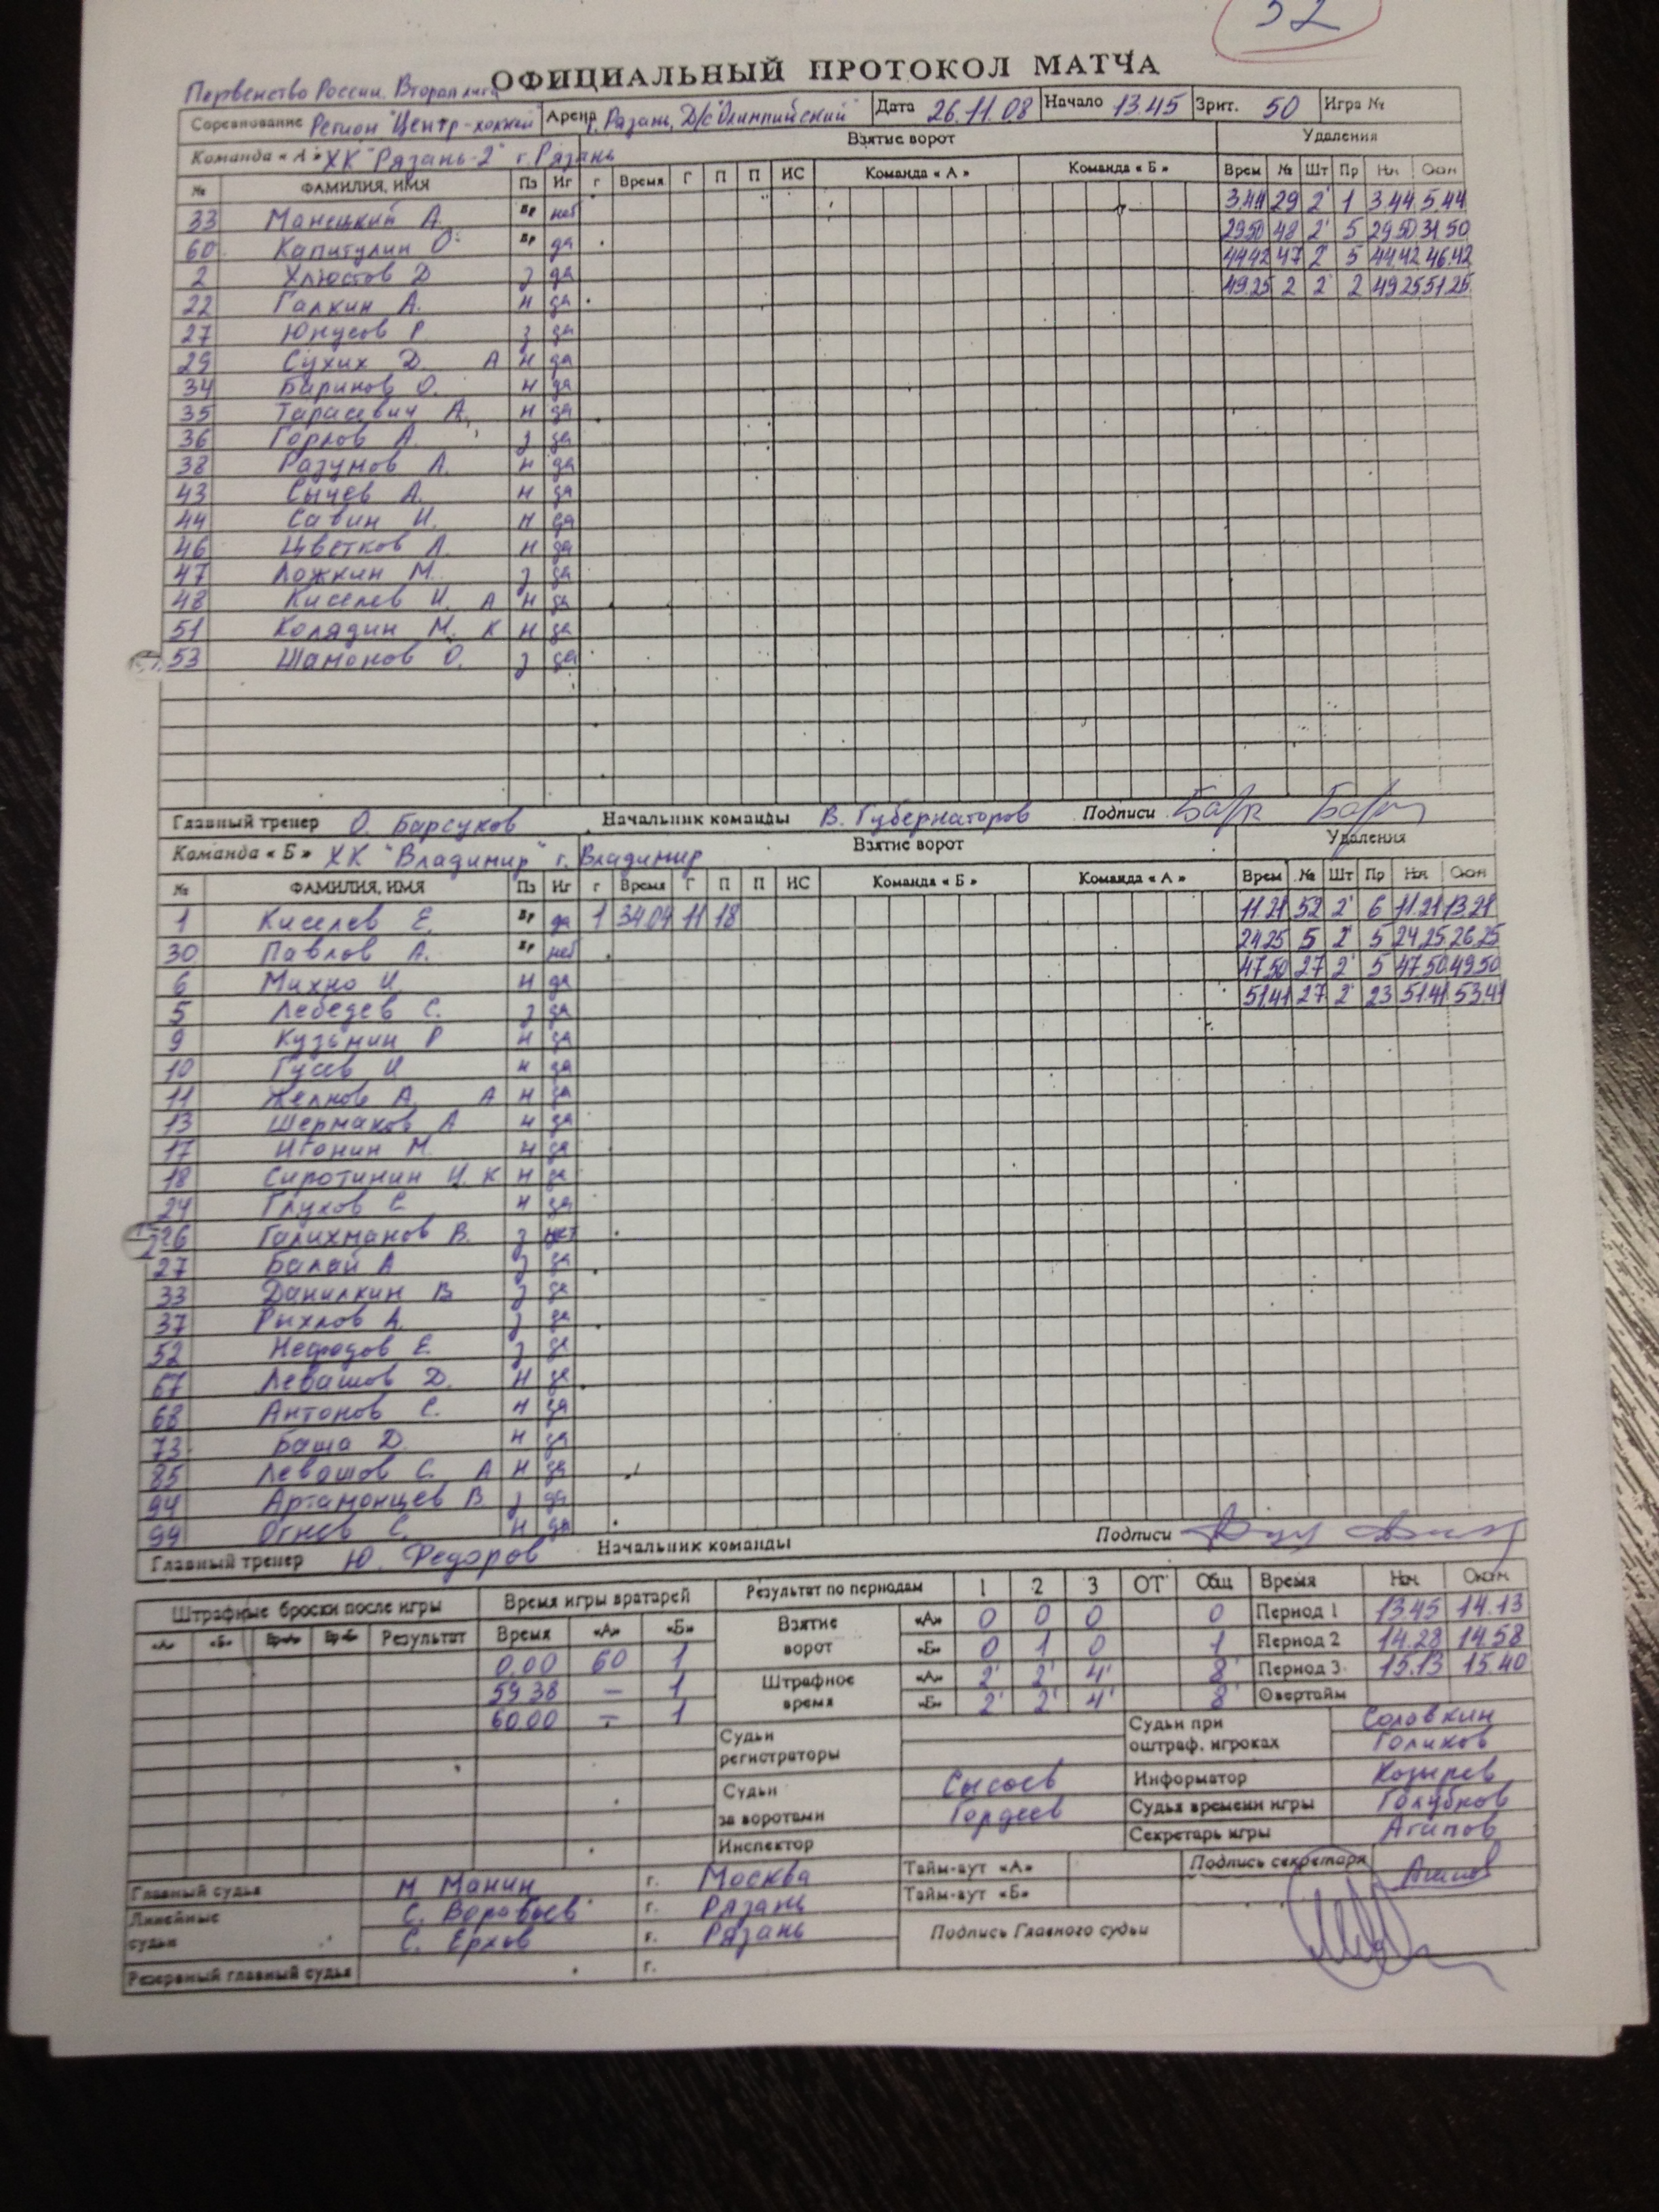 52
ОФИЦИАЛЬНЫЙ ПРОТОКОЛ МАТЧА
Первенство России. Вторая лига
Соревнование Регион "Центр-хоккей" Арена г. Рязань, Д/с "Олимпийский" Дата 26.11.08 Начало 13.45 Зрит. 50 Игра №
Команда «А» ХК "Рязань-2" г. Рязань Взятие ворот Удаления
№ ФАМИЛИЯ, ИМЯ Пз Иг г Время Г П П ИС Команда «А» Команда «Б» Врем № Шт Пр Нч Окон
33 Манецкий А. Вр нет 3.44 29 2' 1 3.44 5.44
60 Капитулин О. Вр да 29.50 48 2' 5 29.50 31.50
2 Хлюстов Д з да 44.42 47 2' 5 44.42 46.42
22 Галкин А. н да 49.25 2 2' 2 49.25 51.25
27 Юнусов Р. з да
29 Сухих Д. А н да
34 Баринов О. н да
35 Тарасевич А. н да
36 Горлов А. з да
38 Разумов А. н да
43 Сычев А. н да
44 Савин И. н да
46 Цветков А. н да
47 Ложкин М. з да
48 Киселев И. А н да
51 Колядин М. К н да
53 Шамонов О. з да
Главный тренер О. Барсуков Начальник команды В. Губернаторов Подписи
Команда «Б» ХК "Владимир" г. Владимир Взятие ворот Удаления
№ ФАМИЛИЯ, ИМЯ Пз Иг г Время Г П П ИС Команда «Б» Команда «А» Врем № Шт Пр Нч Окон
1 Киселев Е. Вр да 1 34.04 11 18 11.21 52 2' 6 11.21 13.21
30 Павлов А. Вр нет 24.25 5 2' 5 24.25 26.25
6 Михно И. н да 47.50 27 2' 5 47.50 49.50
5 Лебедев С. з да 51.41 27 2' 23 51.41 53.41
9 Кузьмин Р н да
10 Гусев И н да
11 Желнов А. А н да
13 Шермаков А н да
17 Игонин М. н да
18 Сиротинин И. К н да
24 Глухов С н да
26 Галихманов В. з нет
27 Балай А з да
33 Данилкин В з да
37 Рыхлов А. з да
52 Нефедов Е. з да
67 Левашов Д. н да
68 Антонов С. н да
73 Баша Д. н да
85 Левашов С. А н да
94 Артамонцев В з да
99 Огнев С. н да
Главный тренер Ю. Федоров Начальник команды Подписи
Штрафные броски после игры Время игры вратарей Результат по периодам 1 2 3 ОТ Общ Время Нач Окон
«А» «Б» Вр-А Вр-Б Результат Время «А» «Б» Взятие ворот «А» 0 0 0 0 Период 1 13.45 14.13
0.00 60 1 «Б» 0 1 0 1 Период 2 14.28 14.58
59.38 – 1 Штрафное время «А» 2' 2' 4' 8' Период 3 15.13 15.40
60.00 – 1 «Б» 2' 2' 4' 8' Овертайм
Судьи регистраторы Судьи при оштраф. игроках Соловкин
Голиков
Судьи за воротами Сысоев Информатор Козырев
Гордеев Судья времени игры Голубков
Инспектор Секретарь игры Агапов
Главный судья М. Манин г. Москва Тайм-аут «А» Подпись секретаря
Линейные судьи С. Воробьев г. Рязань Тайм-аут «Б»
С. Ерхов г. Рязань Подпись Главного судьи
Резервный главный судья г.